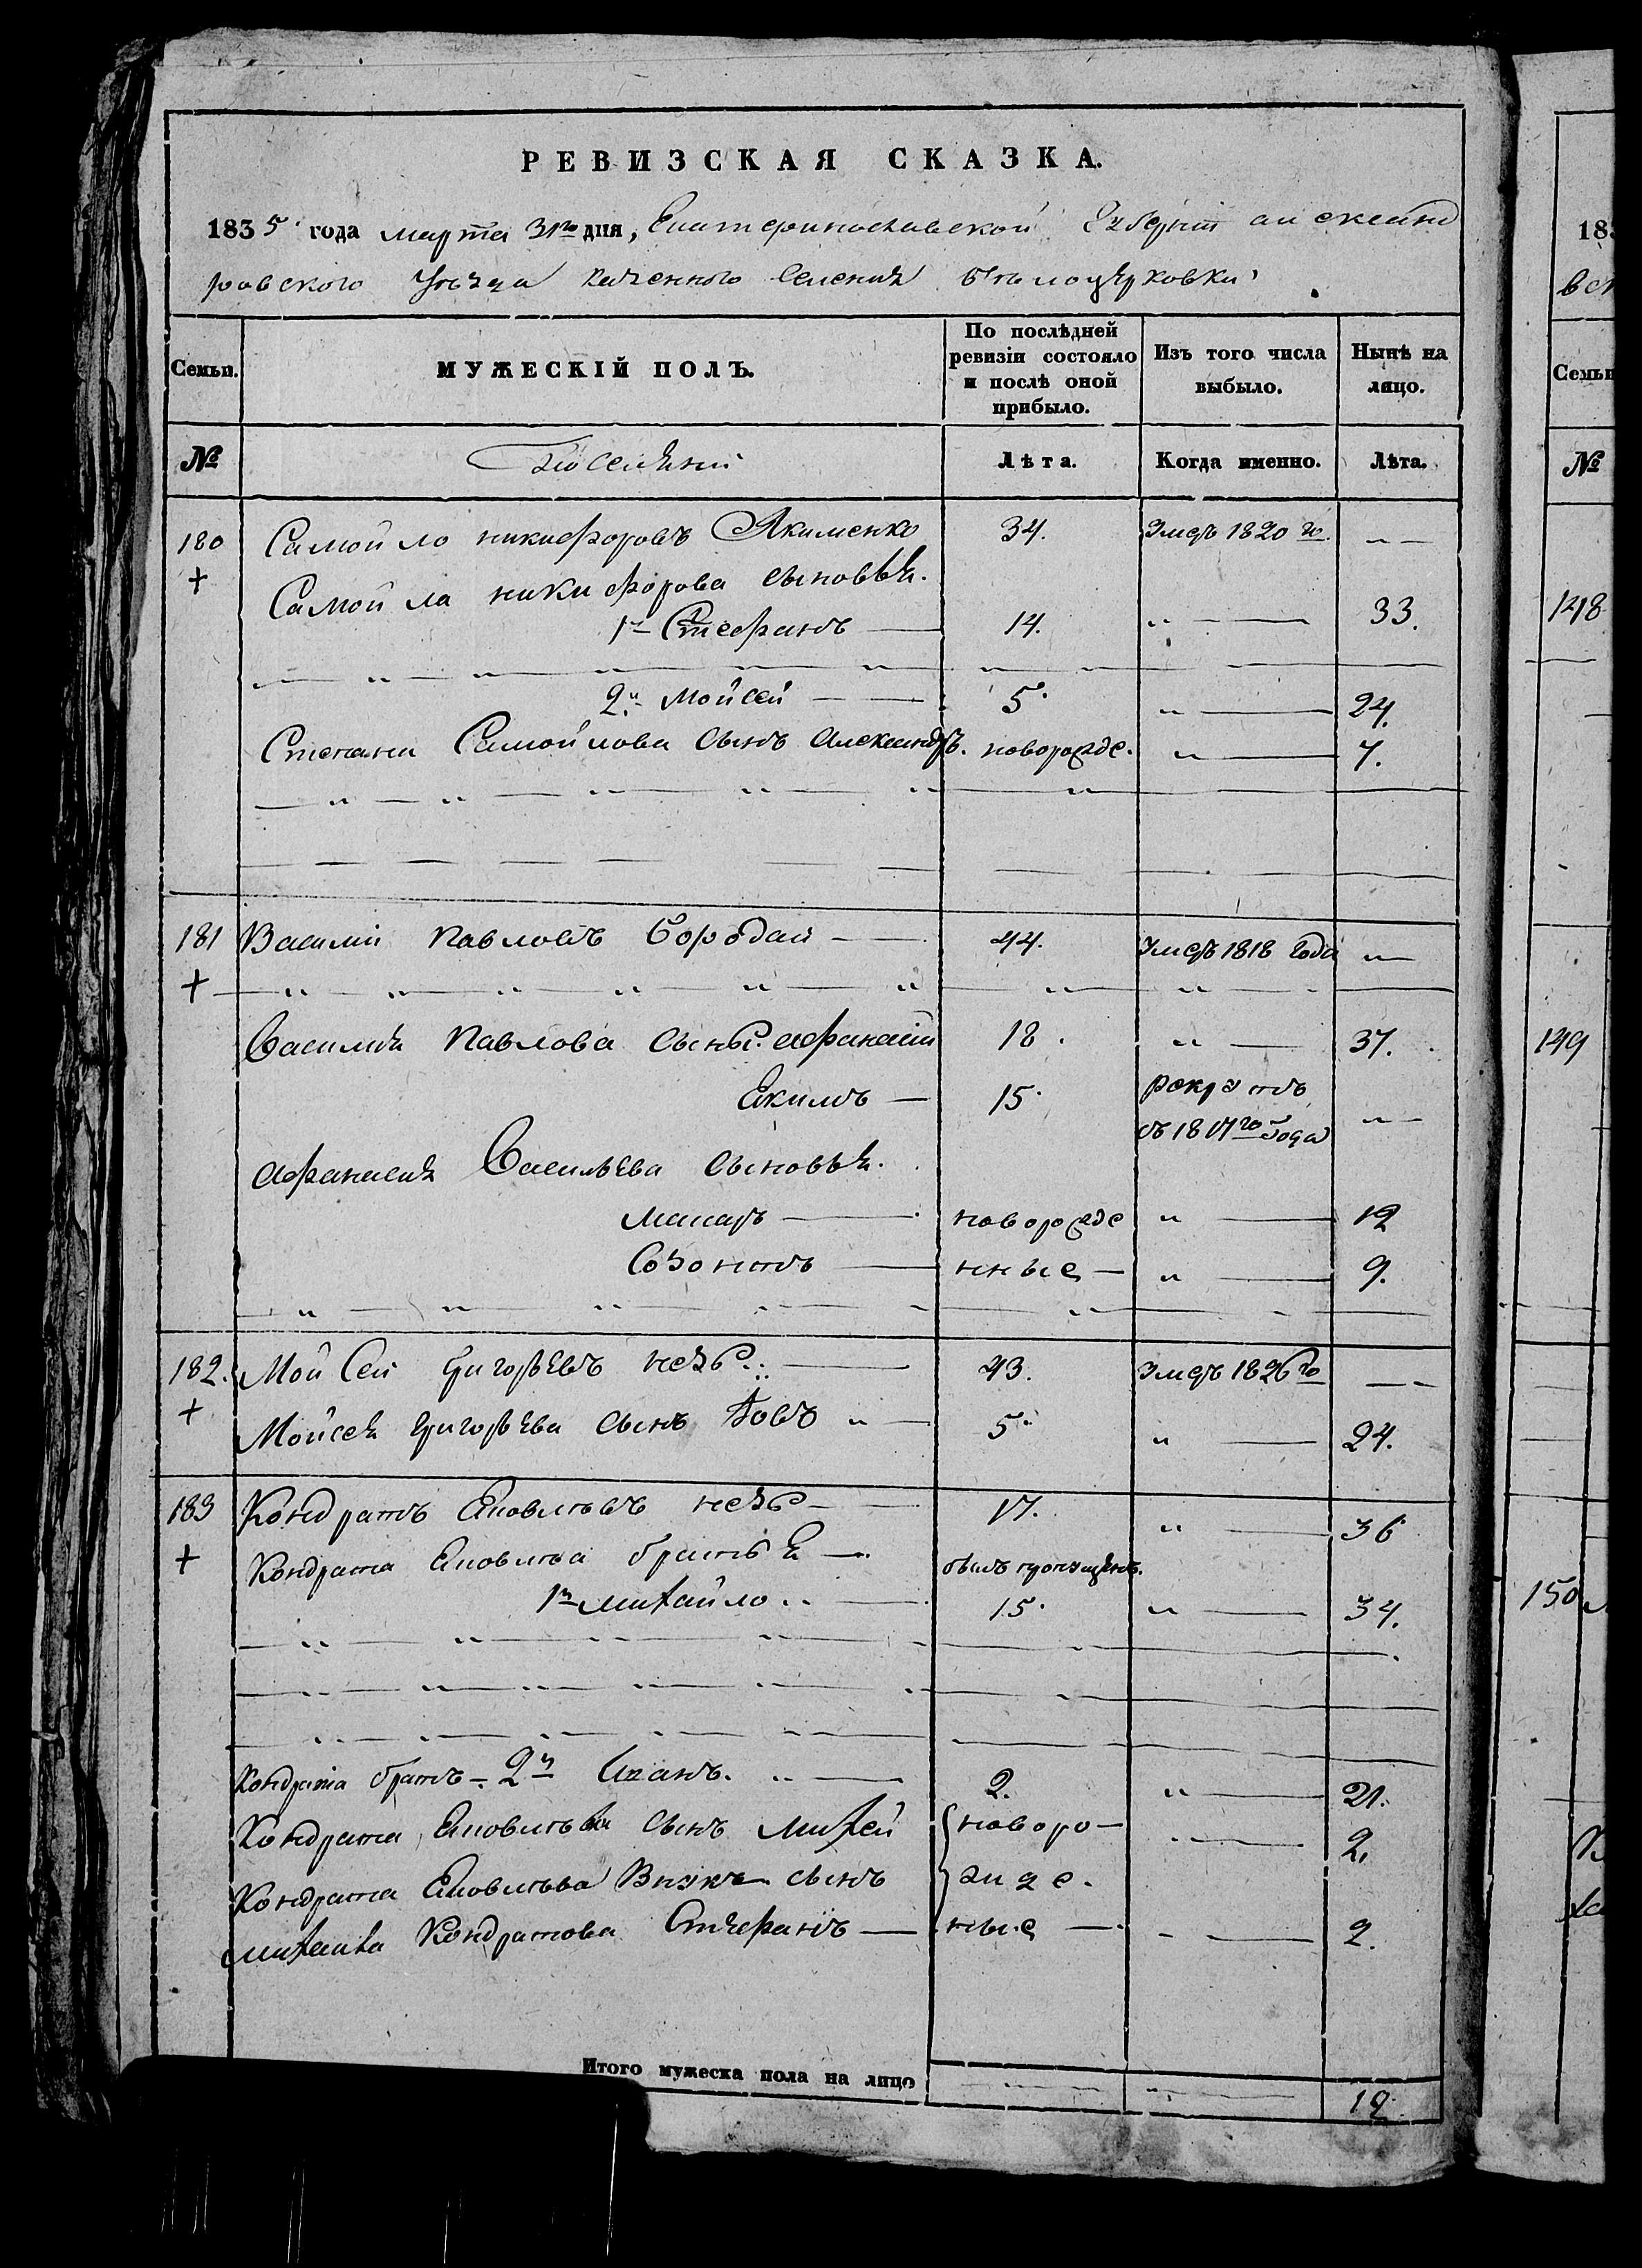 РЕВИЗСКАЯ СКАЗКА.
1835 года марта 31го дня, Екатеринославской Губерніи александ
ровского Уѣзда казенного селенія Бѣлоцерковки
Семьи. МУЖЕСКІЙ ПОЛЪ. По послѣдней ревизіи состояло и послѣ оной прибыло. Изъ того числа выбыло. Нынѣ на лицо.
№ Поселяни Лѣта. Когда именно. Лѣта.
180 Самойло никифоровъ Якименко 34. Умеръ 1820 го
Самойла никифорова сыновья.
1й Стефанъ 14. 33.
2й Мойсей 5. 24.
Степана Самойлова сынъ александръ. новорожде. 7.
181 Василій Павловъ Бородай 44. Умеръ 1818 года
Василия Павлова сыны. афанасій 18. 37.
Екимъ 15. рекрутъ
съ 1817го года
афанасия Васильева сыновья.
Макаръ новорожде 12
Созонтъ нные 9.
182. Мойсей григорьевъ 43. Умеръ 1826 го
Мойсея григорьева сынъ 5. 24.
183 Кондратъ 17. 36
Кондрата братья былъ пропущенъ.
1й михайло 15. 34.
Кондрата братъ 2й Иванъ. 2. 21.
Кондрата сынъ михей новоро 2.
Кондрата Внукъ сынъ жде.
Кондратова Стефанъ ные 2.
Итого мужеска пола на лицо 12
183
Семьи
№
148
149
150